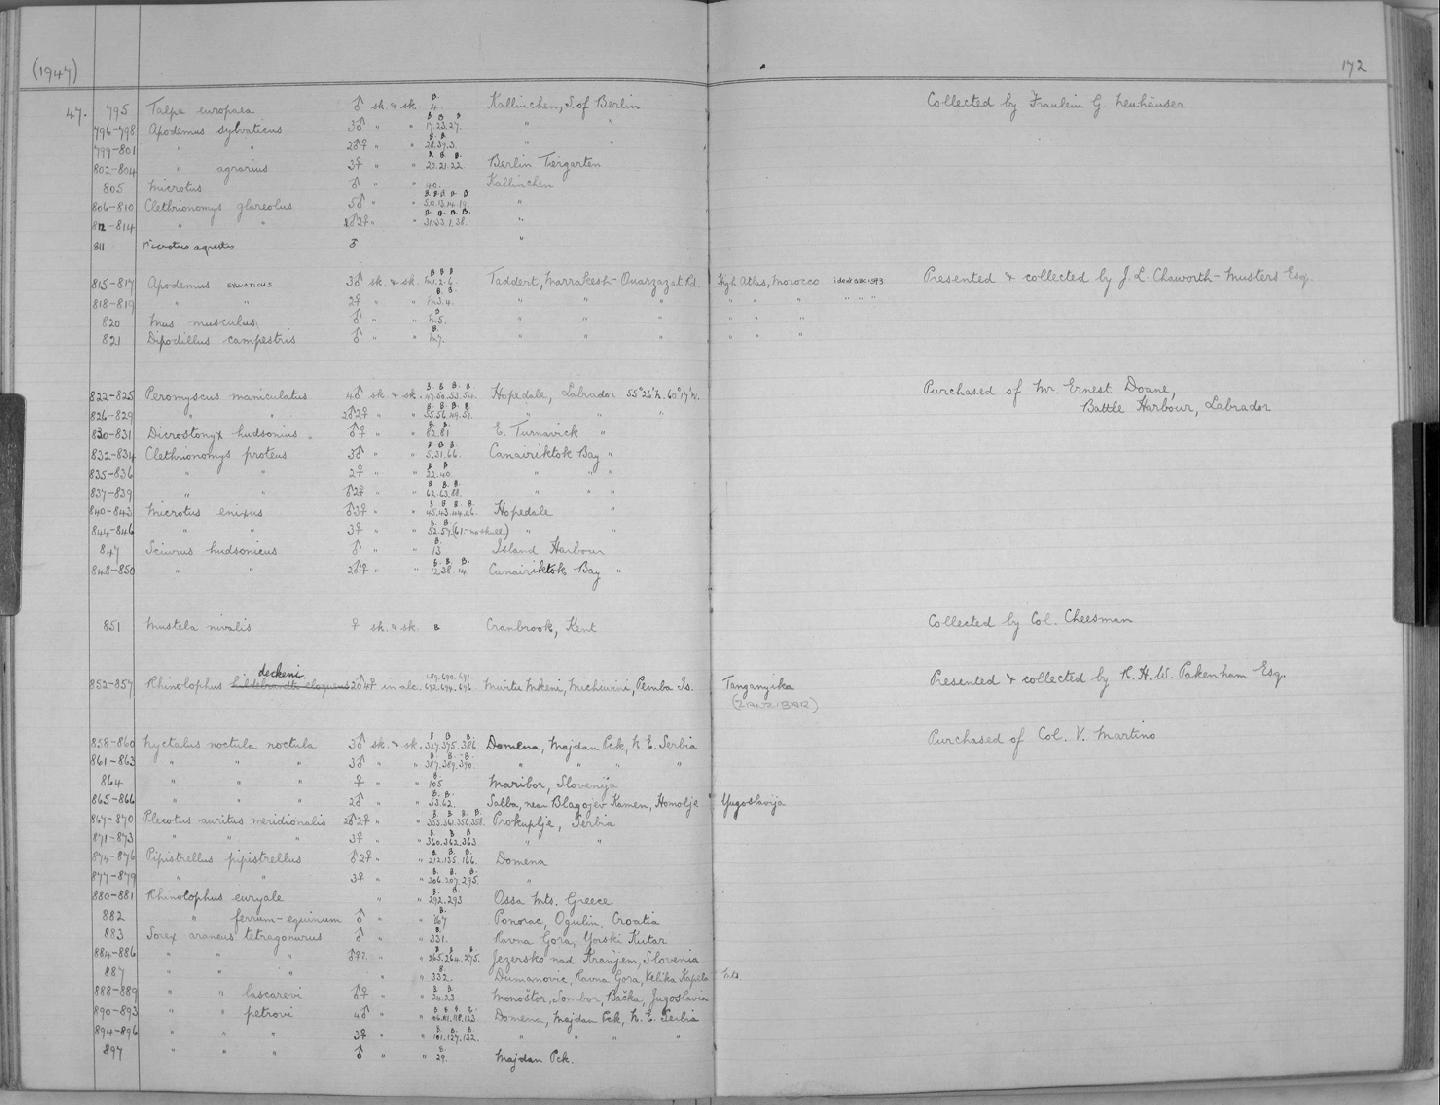 (1947) 172
47. 795 Talpa europaea ♂ sk. & sk. 4. Kallinchen, S. of Berlin Collected by Fraulein G. Neuhäuser
796-798 Apodemus sylvaticus 3♂ " " 17.23.27. " "
799-801 " " 2♂♀ " " " "
802-804 " agrarius 3♀ " " 20.21.22. Berlin Tiergarten
805 Microtus ♂ " " 40. Kallinchen
806-810 Clethrionomys glareolus 5♂ " " "
812-814 " " ♂2♀ " " "
811 Microtus agrestis ♂ "
815-817 Apodemus sylvaticus 3♂ sk. & sk. Taddert, Marrakesh-Ouarzazat Rd. High Atlas, Morocco Presented & collected by J. L. Chaworth-Musters Esq.
818-819 " " 2♀ " " " " " " " "
820 Mus musculus ♂ " " " " " " " "
821 Dipodillus campestris ♂ " " " " " " " "
822-825 Peromyscus maniculatus 4♂ sk & sk. 47.50.53.54. Hopedale, Labrador 55°26'N. 60°17'W. Purchased of Mr. Ernest Doane,
Battle Harbour, Labrador
826-829 " " 2♂2♀ " " 55.56.49.51. " " "
830-831 Dicrostonyx hudsonius ♂♀ " " 82.81 E. Turnavick "
832-834 Clethrionomys proteus 3♂ " " 5.31.66. Canairiktok Bay "
835-836 " " 2♀ " " 32.40. " " "
837-839 " " ♂2♀ " " 62.63.88. " " "
840-843 Microtus enixus ♂3♀ " " 45.43.44.46. Hopedale "
844-846 " " 3♀ " " 52.57.(61-no skull) " "
847 Sciurus hudsonicus ♂ " " 13 Island Harbour
848-850 " " 2♂♀ " " Canairiktok Bay "
851 Mustela nivalis ♀ sk. & sk. Cranbrook, Kent Collected by Col. Cheesman
deckeni
852-857 Rhinolophus hildebrandti eloquens 2♂4♀ in alc. 692.694.696 Muitu Mkeni, Michiwini, Pemba Is. Tanganyika Presented & collected by R. H. W. Pakenham Esq.
(ZANZIBAR)
858-860 Nyctalus noctula noctula 3♂ sk. & sk. 317.375.386 Domena, Majdan Pek, N. E. Serbia Purchased of Col. V. Martino
861-863 " " " 3♂ " " 387.389.390. " " " "
864 " " " ♀ " " 105 Maribor, Slovenija
865-866 " " " 2♂ " " 53.62. Salba, near Blagojev Kamen, Homolje Yugoslavija
867-870 Plecotus auritus meridionalis 2♂2♀ " " 353.361.356.358. Prokuplje, Serbia
871-873 " " " 3♀ " " 360.362.363 " "
874-876 Pipistrellus pipistrellus ♂2♀ " " 212.135.166. Domena
877-879 " " 3♀ " " 206.207.295. "
880-881 Rhinolophus euryale " " 292.293 Ossa Mts. Greece
882 " ferrum-equinum ♂ " " 867 Ponorac, Ogulin, Croatia
883 Sorex araneus tetragonurus ♂ " " 331. Ravna Gora, Gorski Kutar
884-886 " " " " " 265.264.275. Jezersko nad Kranjem, Slovenia
887 " " " " " 332. Dumanovic, Ravna Gora, Velika Kapela Mts.
888-889 " " lascarevi ♂♀ " " 24.23. Monoštor, Sombor, Bačka, Jugoslavia
890-893 " " petrovi 4♂ " " Domena, Majdan Pek, N. E. Serbia
894-896 " " " 3♀ " " 101.127.122. " " " "
897 " " " ♂ " " 29. Majdan Pek.